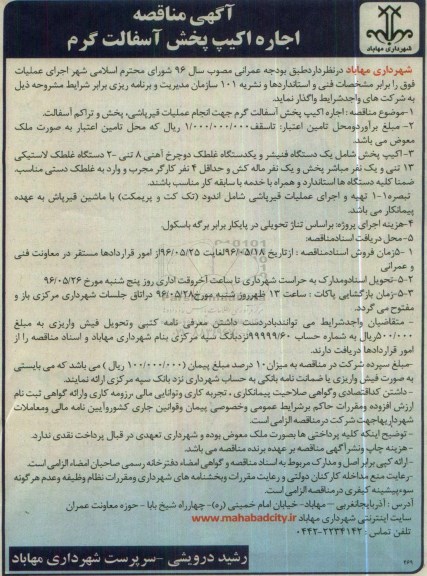 آگهی مناقصه
اجاره اکیپ پخش آسفالت گرم
شهرداری مهاباد
شهرداری مهاباد درنظرداردطبق بودجه عمرانی مصوب سال ۹۶ شورای محترم اسلامی شهر اجرای عملیات
فوق را برابر مشخصات فنی و استانداردها و نشریه ۱۰۱ سازمان مدیریت و برنامه ریزی برابر شرایط مشروحه ذیل
به شرکت های واجدشرایط واگذار نماید.
۱-موضوع مناقصه : اجاره اکیپ پخش آسفالت گرم جهت انجام عملیات قیرپاشی، پخش و تراکم آسفالت.
۲- مبلغ برآوردومحل تامین اعتبار: تاسقف ۱/۰۰۰/۰۰۰/۰۰۰ ریال که محل تامین اعتبار به صورت ملک
معوض می باشد.
۳- اکیپ پخش شامل یک دستگاه فنیشر و یکدستگاه غلطک دوچرخ آهنی ۸ تنی -۲ دستگاه غلطک لاستیکی
۱۳ تنی و یک نفر مباشر پخش و یک نفر ماله کش و حداقل ۴ نفر کارگر مجرب و وارد به غلطک دستی مناسب.
ضمنا کلیه دستگاه ها استاندارد و همراه با خدمه با سابقه کار مناسب باشند.
تبصره۱- تهیه و اجرای عملیات قیرپاشی شامل اندود (تک کت و پریمکت) با ماشین قیرپاش به عهده
پیمانکار می باشد.
۴-هزینه اجرای پروژه: براساس تناژ تحویلی در پایکار برابر برگه باسکول.
۵- محل دریافت اسنادمناقصه:
۱ -۵زمان فروش اسنادمناقصه : ازتاریخ ۹۶/۰۵/۱۸لغایت ۹۶/۰۵/۲۵از امور قراردادها مستقر در معاونت فنی
و عمرانی
۵-۲-تحویل اسنادومدارک به حراست شهرداری تا ساعت آخروقت اداری روز پنج شنبه مورخ ۹۶/۰۵/۲۶
۵-۳-زمان بازگشایی پاکات : ساعت ۱۳ ظهرروز شنبه مورخ ۹۶/۰۵/۲۸ دراتاق جلسات شهرداری مرکزی باز و
مفتوح می گردد.
- متقاضیان واجدشرایط می توانندبادردست داشتن معرفی نامه کتبی وتحویل فیش واریزی به مبلغ
۵۰۰/۰۰۰ریال به شماره حساب ۹۹۹۹۹/۶۰نزدبانک سپه مرکزی بنام شهرداری مهاباد و اسناد مناقصه را از
امور قراردادها دریافت دارند.
-مبلغ سپرده شرکت در مناقصه به میزان۱۰ درصد مبلغ پیمان (۱۰۰/۰۰۰/۰۰۰ ریال ) می باشد که می بایستی
به صورت فیش واریزی یا ضمانت نامه بانکی به حساب شهرداری نزد بانک سپه مرکزی ارائه نمایند.
- داشتن کداقتصادی وگواهی صلاحیت پیمانکاری ، تجربه کاری وتوانایی مالی ،رزومه کاری وارائه گواهی ثبت نام
ارزش افزوده ومقررات حاکم برشرایط عمومی وخصوصی پیمان وقوانین جاری کشوروآیین نامه مالی ومعاملات
شهرداریهاجهت شرکت درمناقصه الزامی است.
- توضیح اینکه کلیه پرداختی ها بصورت ملک معوض بوده و شهرداری تعهدی در قبال پرداخت نقدی ندارد.
- هزینه چاپ ونشرآگهی مناقصه بر عهده برنده مناقصه می باشد.
- ارائه کپی برابر اصل و مدارک مربوط به اسناد مناقصه و گواهی امضاء دفترخانه رسمی صاحبان امضاء الزامی است.
-رعایت منع مداخله کارکنان دولتی و رعایت مقررات وبخشنامه های شهرداری ومقررات نظام وظیفه وعدم هرگونه
سوءپیشینه کیفری درمناقصه الزامی است.
آدرس : آذربایجانغربی – مهاباد- خیابان امام خمینی (ره)- چهارراه شیخ بابا - حوزه معاونت عمران
سایت اینترنتی شهرداری مهاباد www.mahabadcity.ir
تلفن تماس : ۲۲۳۴۱۴۲-۰۴۴۲
رشید درویشی –سرپرست شهرداری مهاباد